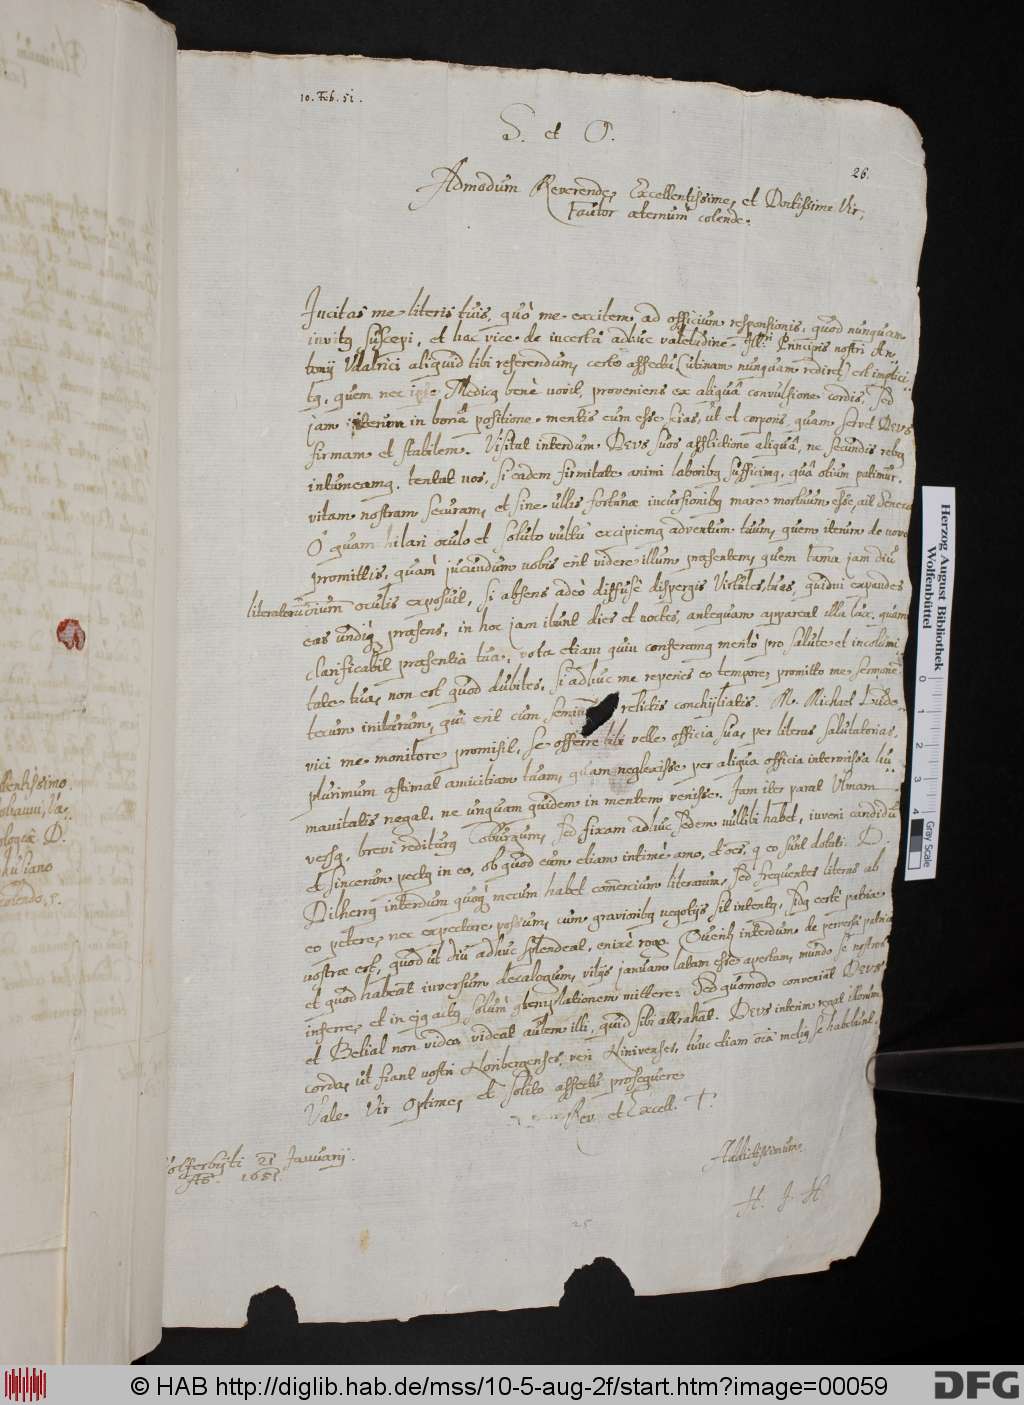 10. Feb. 51.
S. et O.
26.
Admodum Reverende, Excellentissime, et Doctissime Vir,
Fautor æternum colende.
Incitas me literis tuis, quò me excitem ad officium responsionis, quod nunquam
invitq suscepi, et hac vice de incerta adhuc valetudine Principis nostri An-
tonij Vdalrici aliquid tibi referendum, certo affectu (utinam nunquam rediret) est implici-
tq, quem nec ipse Medicq benè novit, proveniens ex aliquâ convulsione cordis, sed
jam iterum in bonâ positione mentis eum esse scias, ut et corporis, quam servet DEVS
firmam et stabilem. Visitat interdum DEVS suos afflictione aliquâ, ne secundis rebq
intumeamq. tentat nos, si eadem firmitate animi laboribq sufficimq, quâ otium patimur.
vitam nostram securam, et sine ullis fortunæ incursionibq mare mortuum esse, ait Seneca
O quam hilari oculo et soluto vultu excipiemq adventum tuum, quem iterum de novo
promittis, quàm jucundum nobis erit videre illum præsentem, quem fama jam diu
literatorum oculis exposuit, si absens adeò diffusè dispergis Virtutes tuas, quidni expandes
eas undiq præsens, in hoc jam ibunt dies et noctes, antequam appareat illa lux, quam
clarificabit præsentia tua, vota etiam quin conferamq meritò pro salute et incolumi-
tate tua, non est quod dubites, si adhuc me reperies eo tempore, promitto me sermonē
tecum initurum, qui erit cum relictis conchyliatis. M. Michael
vici me monitore promisit, se offerre tibi velle officia sua, per literas salutatorias,
plurimum æstimat amicitiam tuam, quam neglexisse per aliqua officia intermissa
negat, ne unquam quidem in mentem venisse. Jam iter parat Vlmam
versq, brevi rediturq Coburgum, sed fixam adhuc sedem nullibi habet, iuveni candidū
et sincerum pectq in eo, ob quod eum etiam intimè amo, et oēs, q eo sunt dotati. D.
Dilherrq interdum quoq mecum habet comercium literarum, sed frequentes literas ab
eo petere, nec expectare possum, cum gravioribq negotijs sit intentq, Sidq certè patriæ
nostræ est, quod ut diu adhuc splendeat, enixè rogo. interdum de perversâ patriâ
et quod habeāt inversum decalogum, vitijs januam latam esse apertam, mundo se nostros
inferre, et in ejq actq solùm mittere: Sed quomodo conveniat DEVS
et Belial non video, videat autem illi, quid sibi attrahat. DEVS interim regat illorum
corda, ut fiant nostri Noribergenses, veri Niniverses, tunc etiam oīa meliq se habebunt.
Vale Vir Optime, et solito affectu prosequere
Rev. et Excell. T.
Wolferbyti 21 Januarij.
Aō. 1651.
Addictissimum
H. J. H.
25
Herzog August Bibliothek
Wolfenbüttel
0 1 2 3 4
Gray Scale
© HAB http://diglib.hab.de/mss/10-5-aug-2f/start.htm?image=00059
DFG